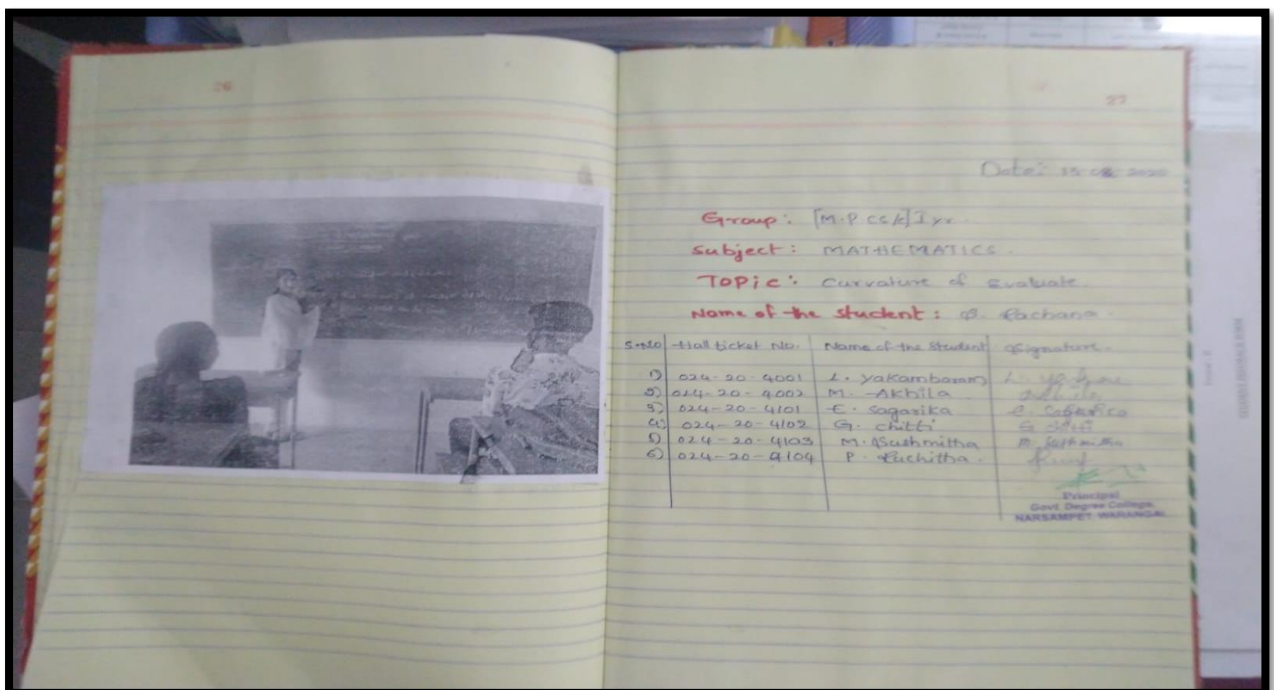 26
27
Date: 15-08-2020
Group: [M.P.CS/E] I yr.
Subject: MATHEMATICS.
Topic: Curvature of Evaluate.
Name of the student: B. Rachana.
S.No Hall ticket No. Name of the Student Signature.
1) 024-20-4001 L. Yakambaram
2) 024-20-4002 M. Akhila
3) 024-20-4101 E. Sagarika E. Sagarica
4) 024-20-4102 G. chitti
5) 024-20-4103 M. Sushmitha M. Sushmitha
6) 024-20-4104 P. Ruchitha.
Principal
Govt. Degree College,
NARSAMPET, WARANGAL